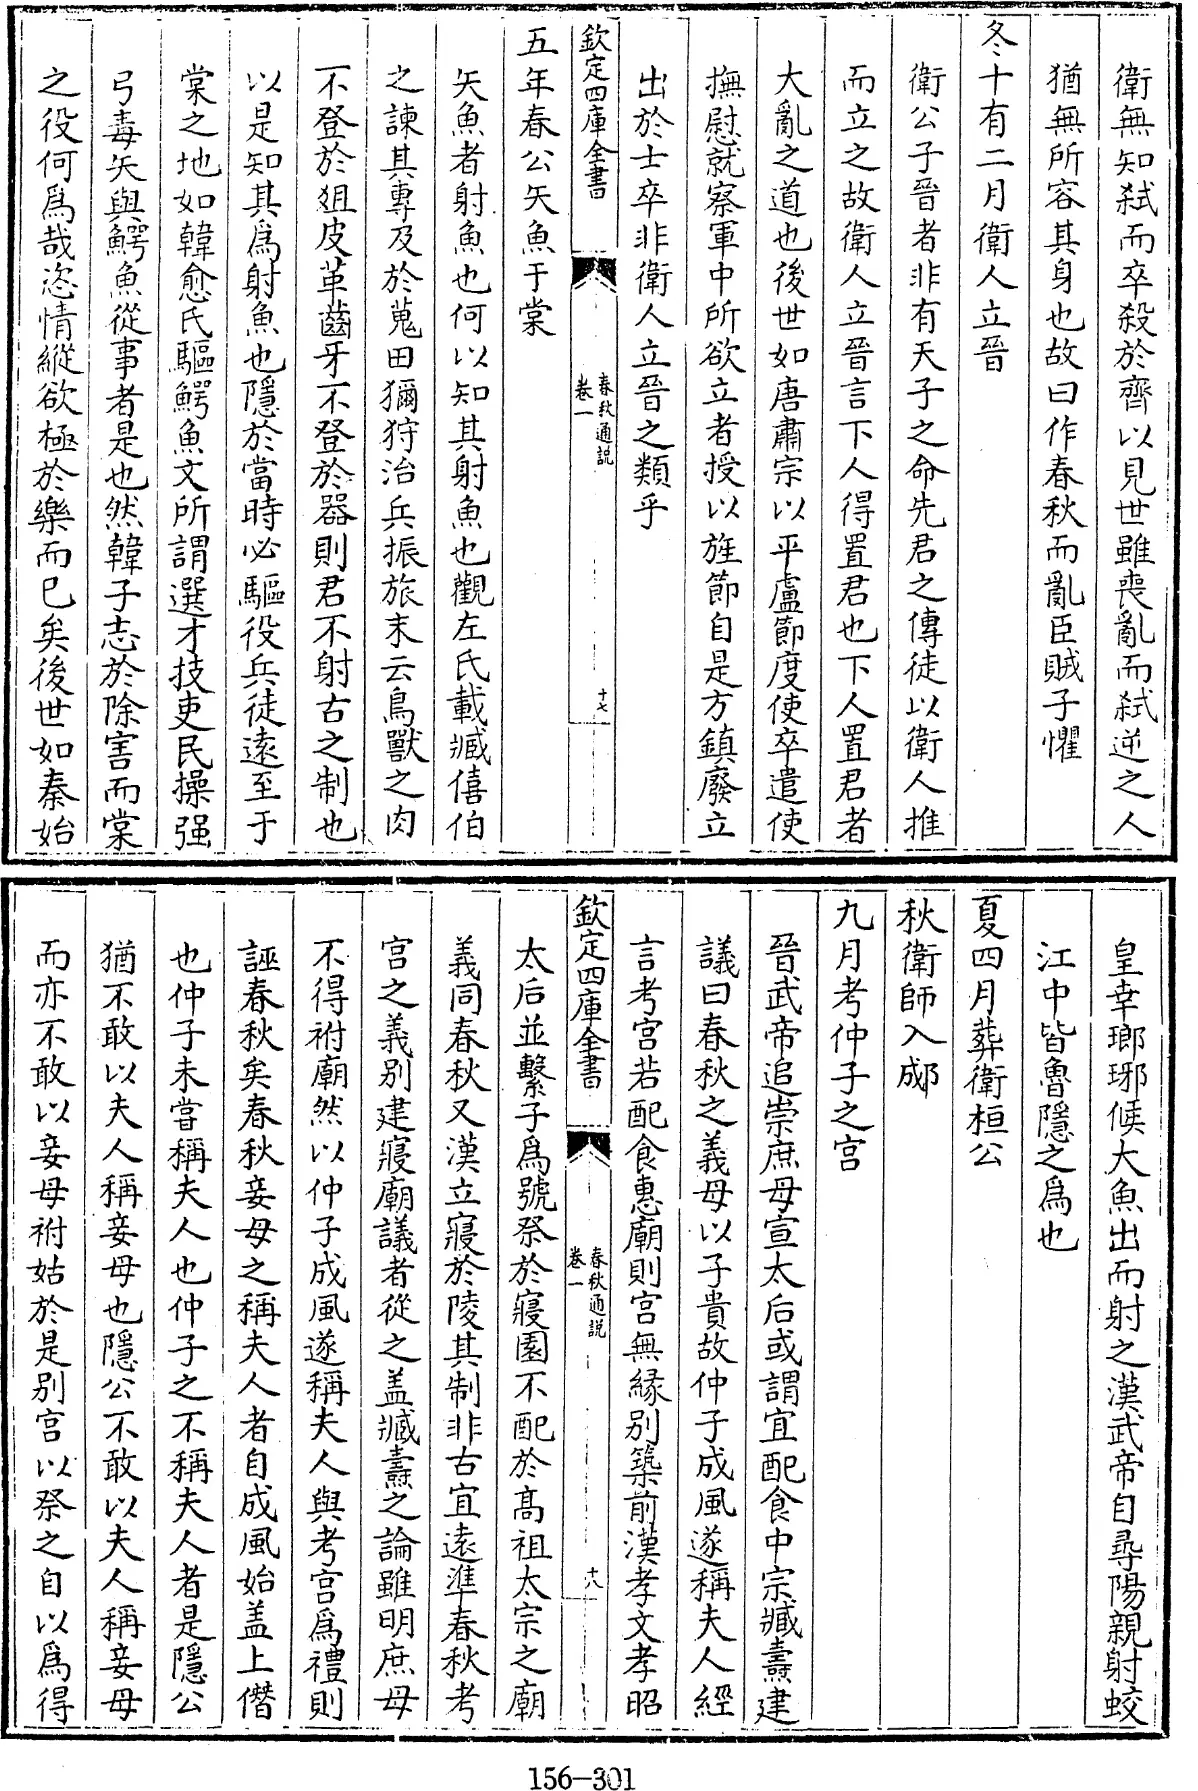 衛無知弑而卒殺於齊以見世雖喪亂而弑逆之人
猶無所容其身也故曰作春秋而亂臣賊子懼
冬十有二月衛人立晉
衛公子晉者非有天子之命先君之傳徒以衛人推
而立之故衛人立晉言下人得置君也下人置君者
大亂之道也後世如唐肅宗以平盧節度使卒遣使
撫慰就察軍中所欲立者授以旌節自是方鎮廢立
出於士卒非衛人立晉之類乎
欽定四庫全書
春秋通説
卷一
十七
五年春公矢魚于棠
矢魚者射魚也何以知其射魚也觀左氏載臧僖伯
之諫其專及於蒐田獮狩治兵振旅末云鳥獸之肉
不登於俎皮革齒牙不登於器則君不射古之制也
以是知其爲射魚也隱於當時必驅役兵徒遠至于
棠之地如韓愈氏驅鰐魚文所謂選才技吏民操强
弓毒矢與鰐魚從事者是也然韓子志於除害而棠
之役何爲哉恣情縱欲極於樂而已矣後世如秦始
皇幸瑯琊候大魚出而射之漢武帝自尋陽親射蛟
江中皆魯隱之爲也
夏四月葬衛桓公
秋衛師入郕
九月考仲子之宫
晉武帝追崇庶母宣太后或謂宜配食中宗臧燾建
議曰春秋之義母以子貴故仲子成風遂稱夫人經
言考宫若配食惠廟則宫無緣别築前漢孝文孝昭
欽定四庫全書
春秋通説
卷一
十八
太后並繫子爲號祭於寢園不配於髙祖太宗之廟
義同春秋又漢立寢於陵其制非古宜遠準春秋考
宫之義别建寢廟議者從之盖臧燾之論雖明庶母
不得祔廟然以仲子成風遂稱夫人與考宫爲禮則
誣春秋矣春秋妾母之稱夫人者自成風始盖上僭
也仲子未甞稱夫人也仲子之不稱夫人者是隱公
猶不敢以夫人稱妾母也隱公不敢以夫人稱妾母
而亦不敢以妾母祔姑於是别宫以祭之自以爲得
156-301